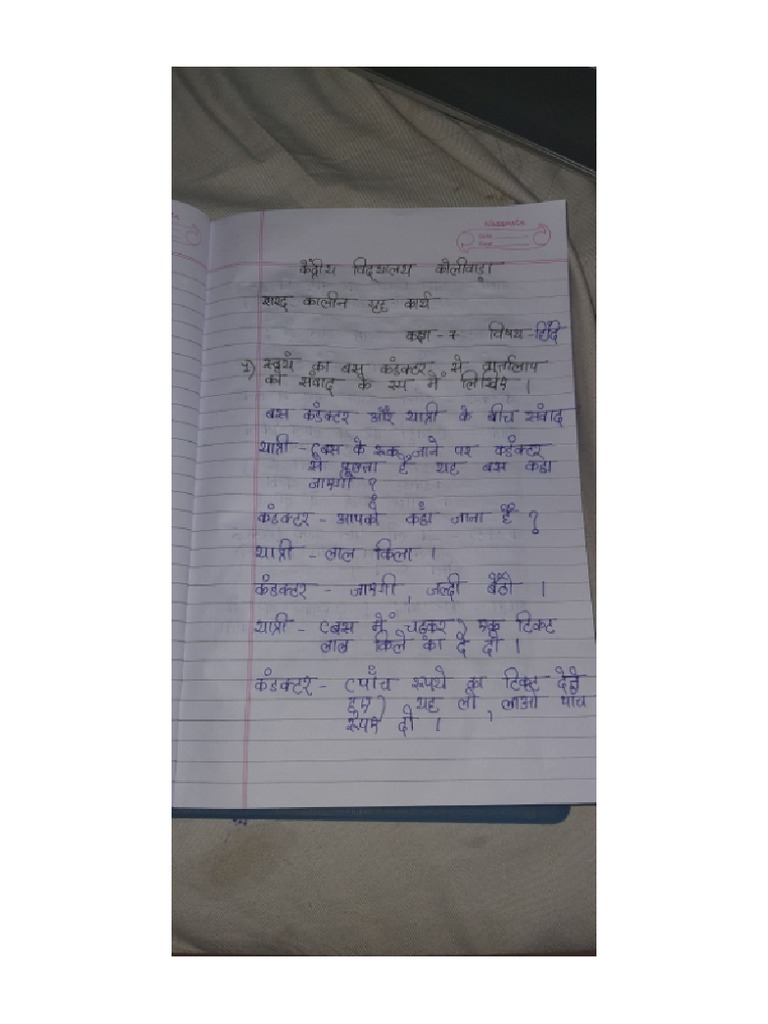 classmate
Date
Page
केंद्रीय विद्यालय कोलीवाड़ा
शरद कालीन गृह कार्य
कक्षा - 7 विषय - हिंदि
1) स्वयं का बस कंडक्टर से वार्तालाप
को संवाद के रूप में लिखिए ।
बस कंडक्टर और यात्री के बीच संवाद
यात्री - (बस के रूक जाने पर कंडंक्टर
से पूछता है यह बस कहा
जाएगी ?
कंडंक्टर - आपको कहां जाना है ?
यात्री - लाल किला ।
कंडक्टर - जाएगी , जल्दी बैठो ।
यात्री - (बस में चढ़कर) एक टिकट
लाल किले का दे दो ।
कंडक्टर - (पाँच रूपये का टिकट देते
हुए) यह लो , लाओ पाँच
रूपए दो ।